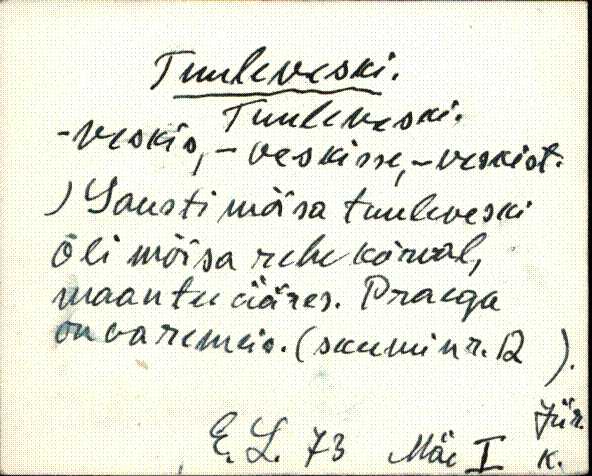 Tuuleveski.
Tuuleveski.
-veskis, -veskisse, -veskist.
) Sausti mõisa tuuleveski
oli mõisa rehe kõrval,
maantee ääres. Praega
on varemeis. (skeemi nr. 12 ).
E. L. 73 Mäe I Jür. k.